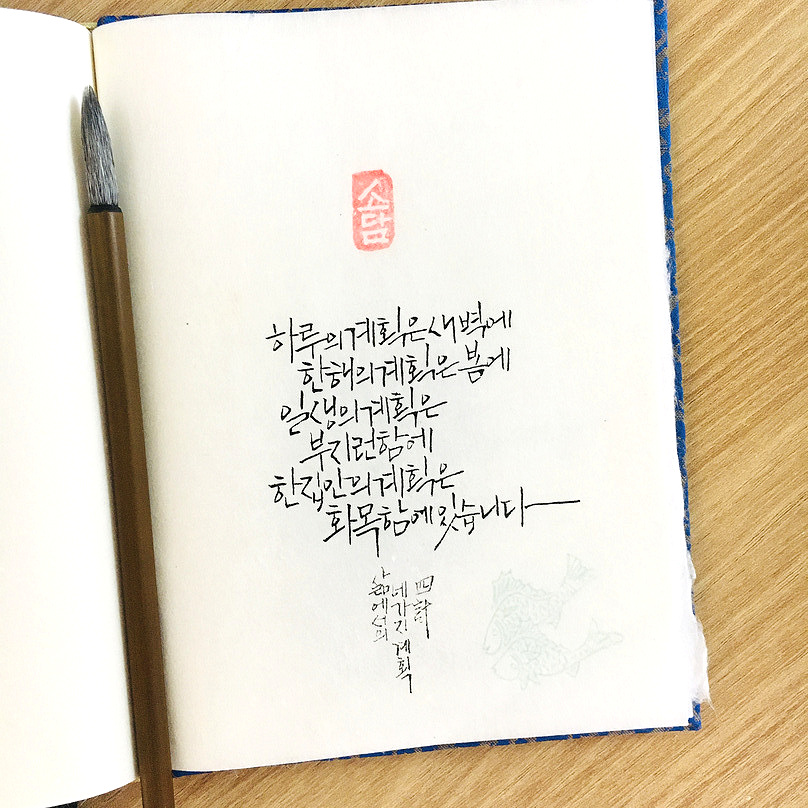 소담
하루의 계획은 새벽에
한해의 계획은 봄에
일생의 계획은
부지런함에
한집안의 계획은
화목함에 있습니다
四計
네가지 계획
삶에서의